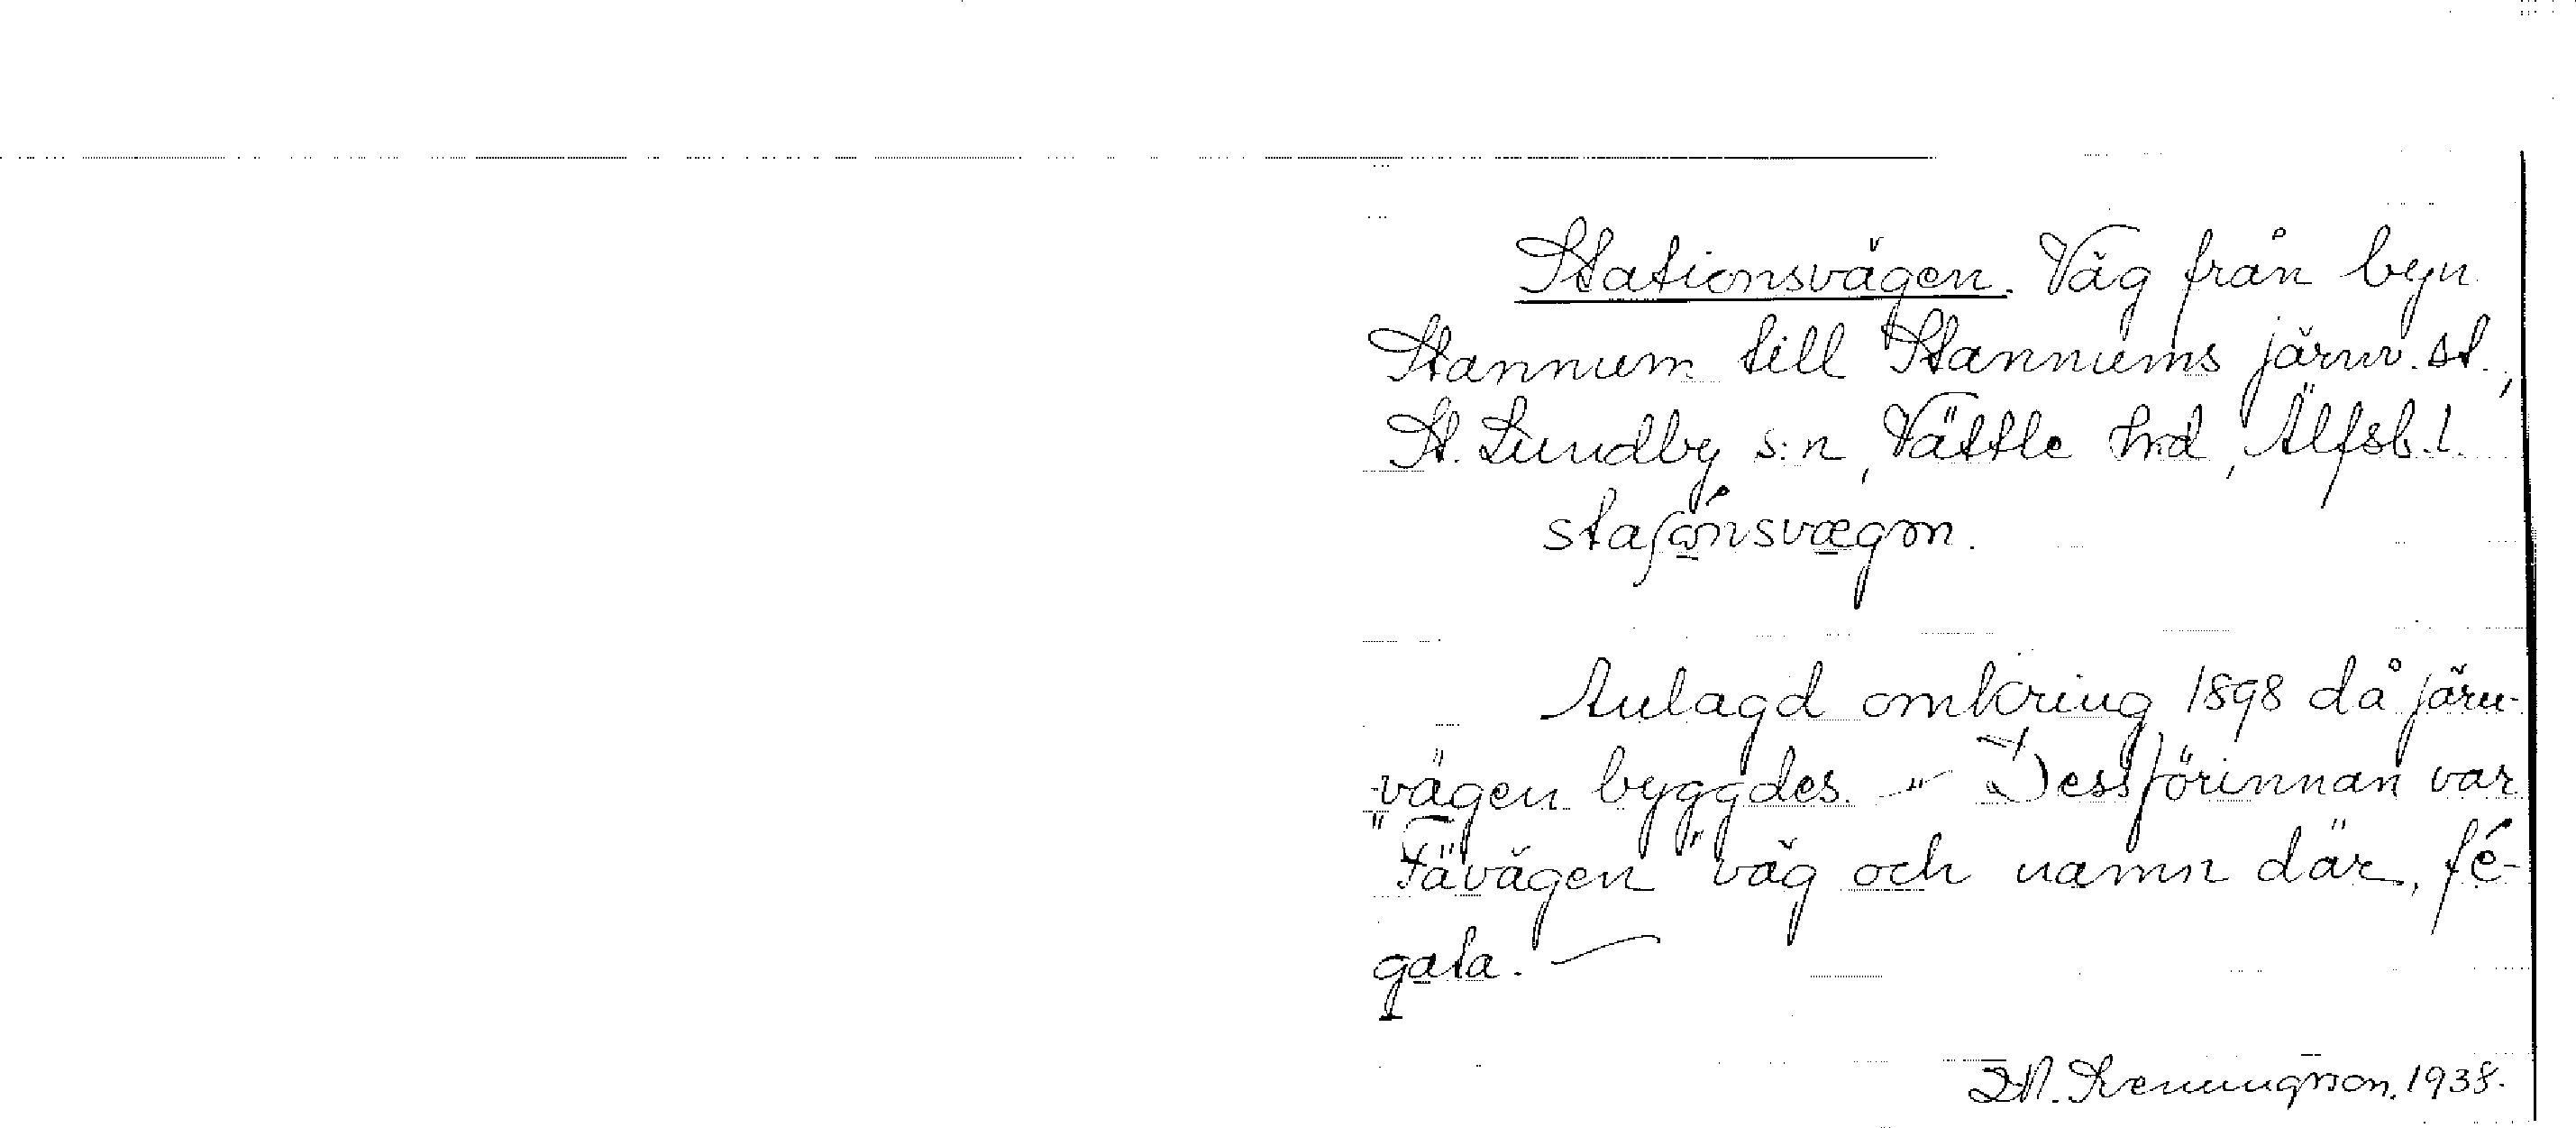 Stationsvägen. Väg från byn
Stannum till Stannums järnv.st.,
St. Lundby s:n, Vättle hrd, Älfsb.l.
staʃónsvægən.
Anlagd omkring 1898 då järn-
vägen byggdes. — Dessförinnan var
"Fävägen" väg och namn där, fé-
gata. —
1938.